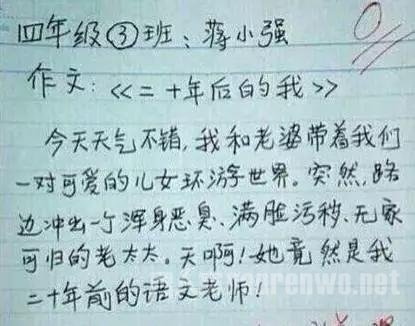 四年级③班：蒋小强
0
作文：<<二十年后的我>>
今天天气不错，我和老婆带着我们
一对可爱的儿女环游世界。突然，路
边冲出一个浑身恶臭、满脸污秽、无家
可归的老太太。天啊！她竟然是我
二十年前的语文老师！